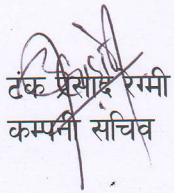 टंक प्रसाद रेग्मी
कम्पनी सचिव